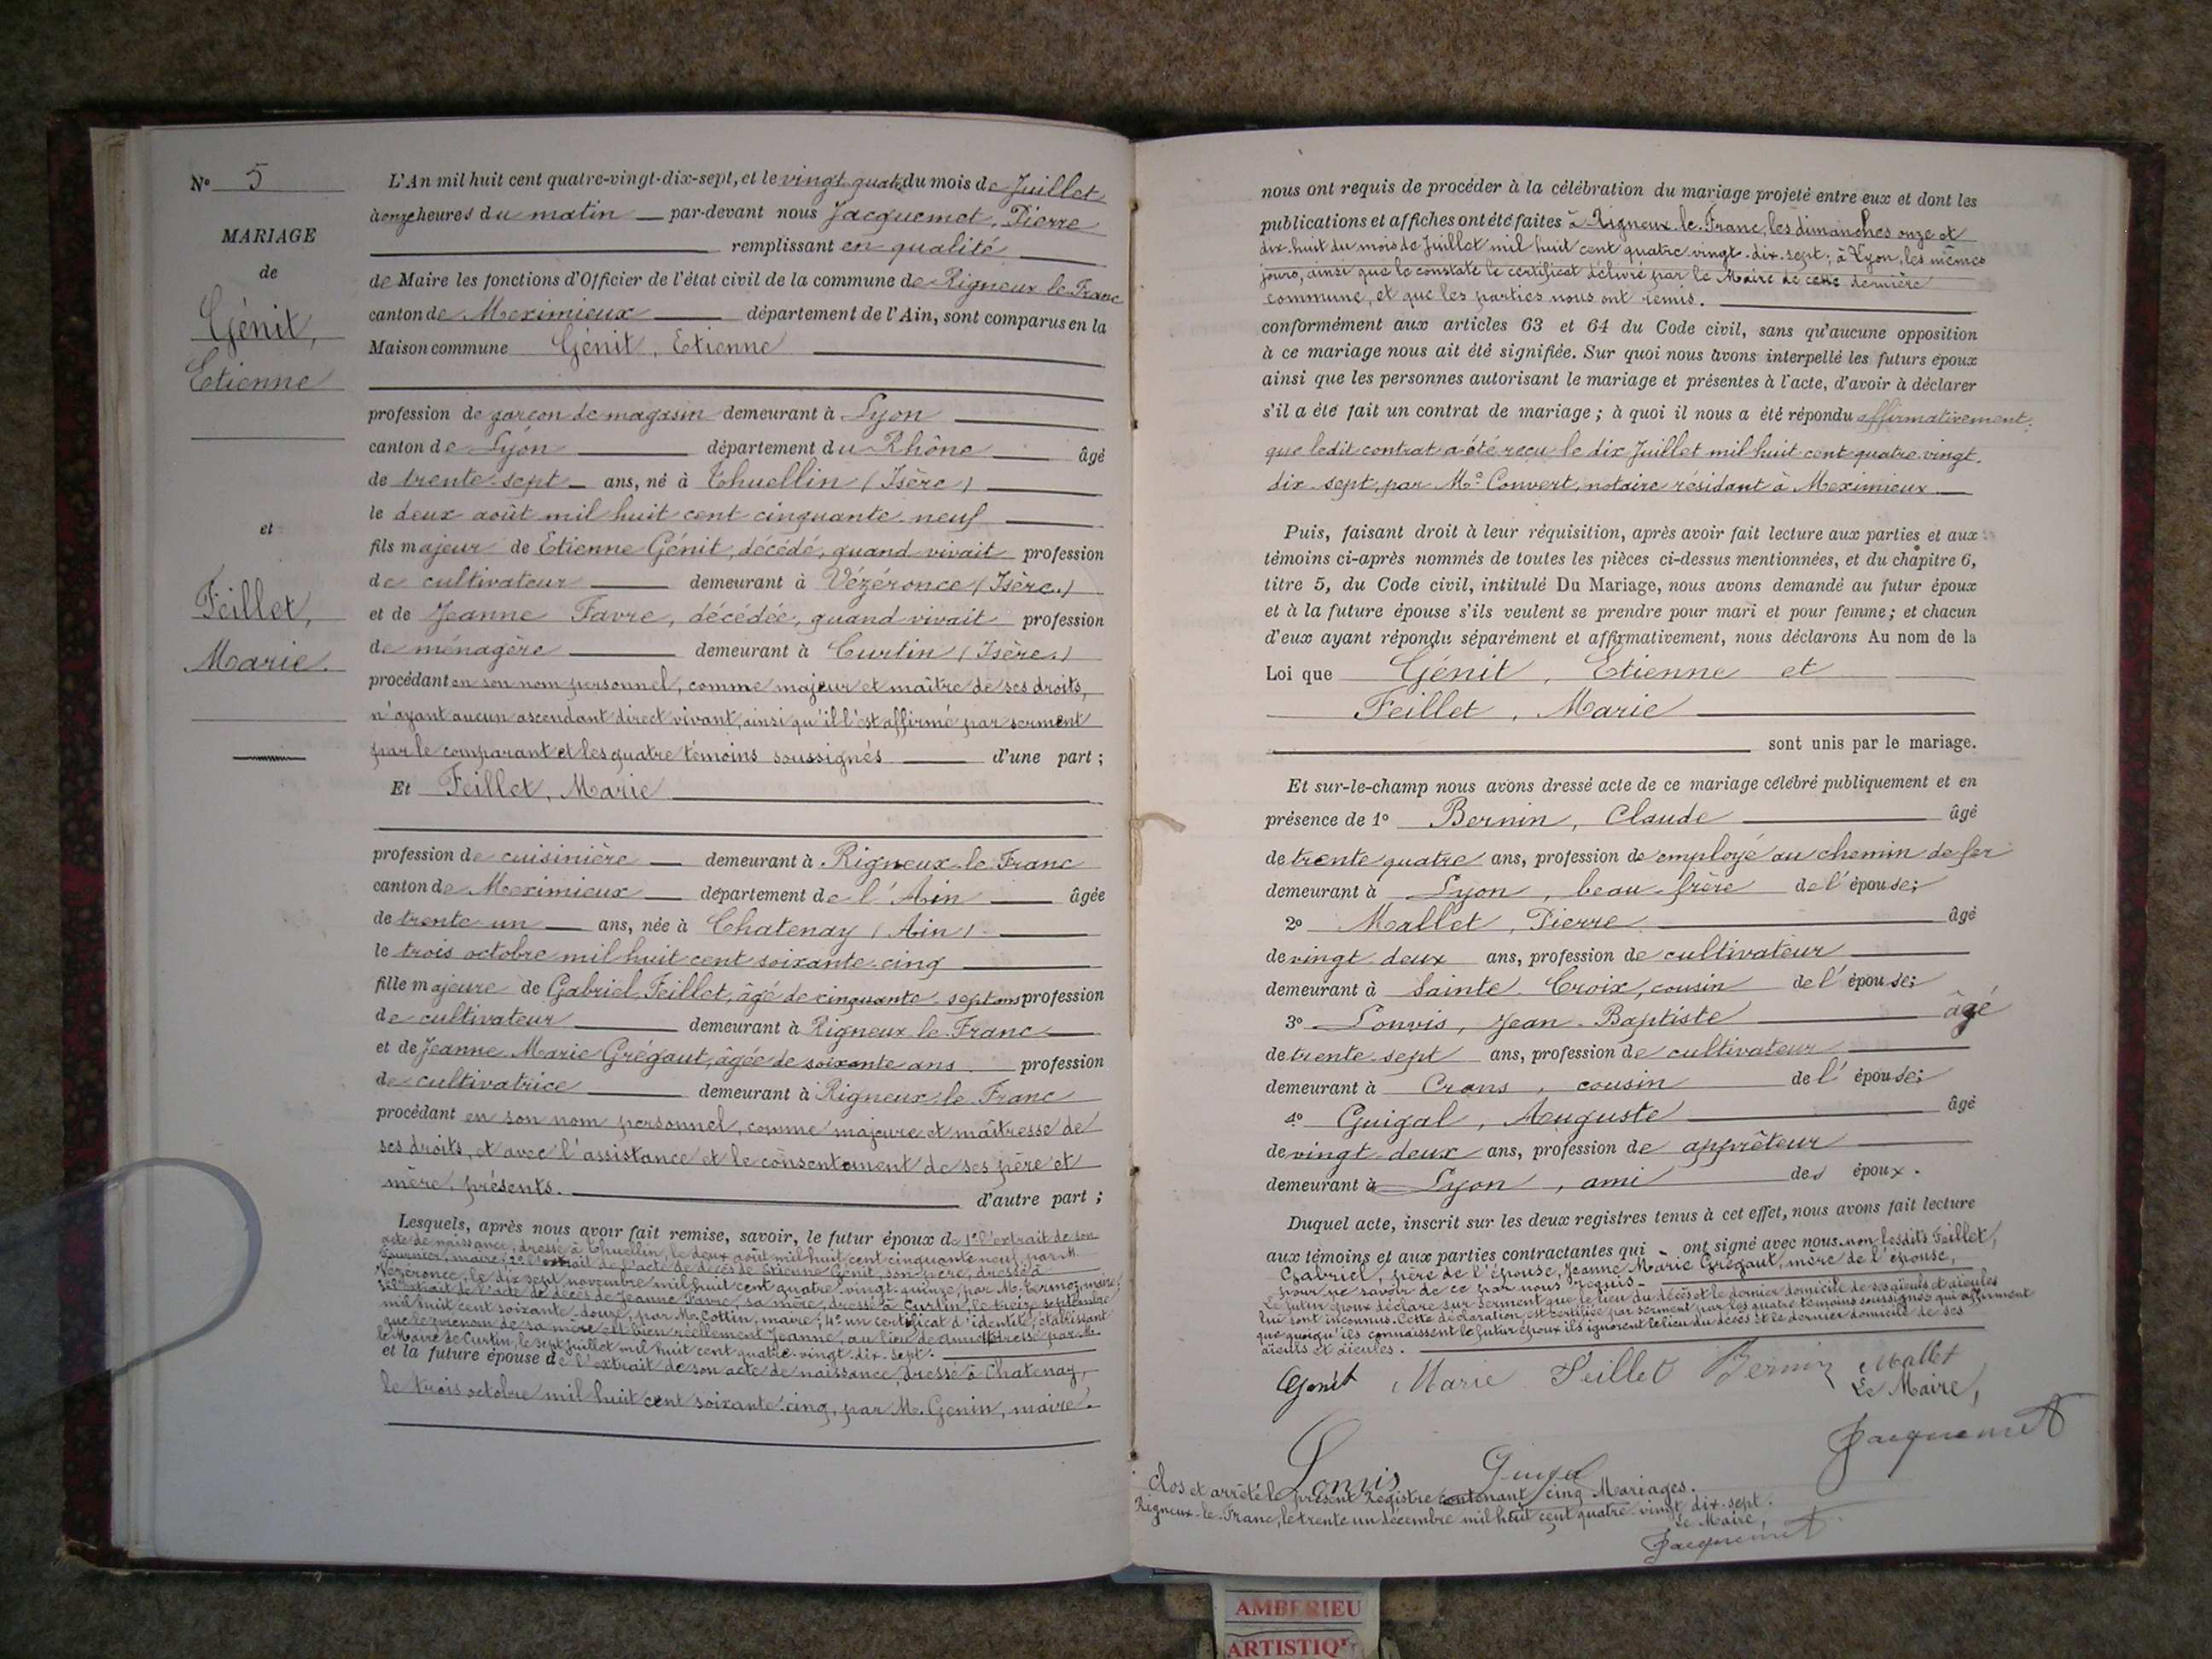 N° 5
MARIAGE
de
Génit,
Etienne
et
Feillet,
Marie.
L'An mil huit cent quatre-vingt-dix-sept, et le vingt-quatre du mois de Juillet
à onze heures du matin par-devant nous Jacquemet, Pierre
remplissant en qualité
de Maire les fonctions d'Officier de l'état civil de la commune de Rigneux le Franc
canton de Meximieux département de l'Ain, sont comparus en la
Maison commune Génit, Etienne
profession de garçon de magasin demeurant à Lyon
canton de Lyon département du Rhône âgé
de trente-sept ans, né à Thuellin (Isère)
le deux août mil huit cent cinquante-neuf
fils majeur de Etienne Génit, décédé, quand vivait profession
de cultivateur demeurant à Vézéronce (Isère)
et de Jeanne Favre, décédée, quand vivait profession
de ménagère demeurant à Curtin (Isère)
procédant en son nom personnel, comme majeur et maître de ses droits,
n'ayant aucun ascendant direct vivant, ainsi qu'il l'est affirmé par serment
par le comparant et les quatre témoins soussignés d'une part ;
Et Feillet, Marie
profession de cuisinière demeurant à Rigneux-le-Franc
canton de Meximieux département de l'Ain âgée
de trente-un ans, née à Chatenay (Ain)
le trois octobre mil huit cent soixante-cinq
fille majeure de Gabriel Feillet, âgé de cinquante-sept ans profession
de cultivateur demeurant à Rigneux le Franc
et de Jeanne Marie Grégaut, âgée de soixante ans profession
de cultivatrice demeurant à Rigneux-le-Franc
procédant en son nom personnel, comme majeure et maîtresse de
ses droits, et avec l'assistance et le consentement de ses père et
mère, présents. d'autre part ;
Lesquels, après nous avoir fait remise, savoir, le futur époux de 1° l'extrait de son
acte de naissance, dressé à Thuellin, le deux août mil huit cent cinquante neuf, par M.
Fournier, maire; 2° l'extrait de l'acte de décès de Etienne Génit, son père, dressé à
Vézéronce, le dix sept novembre mil huit cent quatre-vingt-quinze, par M.
3° l'extrait de l'acte de décès de Jeanne Favre, sa mère, dressé à Curtin, le treize septembre
mil huit cent soixante-douze, par M. Cottin, maire; 4° un certificat d'identité, établissant
que le prénom de sa mère est bien réellement Jeanne, au lieu de dressé par M.
le Maire de Curtin, le sept juillet mil huit cent quatre-vingt-dix-sept.
et la future épouse de l'extrait de son acte de naissance, dressé à Chatenay,
le trois octobre mil huit cent soixante-cinq, par M. Genin, maire.
nous ont requis de procéder à la célébration du mariage projeté entre eux et dont les
publications et affiches ont été faites à Rigneux-le-Franc, les dimanches onze et
dix-huit du mois de Juillet mil huit cent quatre-vingt-dix-sept; à Lyon, les mêmes
jours, ainsi que le constate le certificat délivré par le Maire de cette dernière
commune, et que les parties nous ont remis.
conformément aux articles 63 et 64 du Code civil, sans qu'aucune opposition
à ce mariage nous ait été signifiée. Sur quoi nous avons interpellé les futurs époux
ainsi que les personnes autorisant le mariage et présentes à l'acte, d'avoir à déclarer
s'il a été fait un contrat de mariage ; à quoi il nous a été répondu affirmativement,
que ledit contrat a été reçu le dix Juillet mil huit cent quatre-vingt-
dix-sept, par Me Convert, notaire résidant à Meximieux
Puis, faisant droit à leur réquisition, après avoir fait lecture aux parties et aux
témoins ci-après nommés de toutes les pièces ci-dessus mentionnées, et du chapitre 6,
titre 5, du Code civil, intitulé Du Mariage, nous avons demandé au futur époux
et à la future épouse s'ils veulent se prendre pour mari et pour femme ; et chacun
d'eux ayant répondu séparément et affirmativement, nous déclarons Au nom de la
Loi que Génit, Etienne et
Feillet, Marie
sont unis par le mariage.
Et sur-le-champ nous avons dressé acte de ce mariage célébré publiquement et en
présence de 1° Bernin, Claude âgé
de trente quatre ans, profession de employé au chemin de fer
demeurant à Lyon, beau-frère de l'épouse;
2° Mallet, Pierre âgé
de vingt-deux ans, profession de cultivateur
demeurant à Sainte-Croix, cousin de l'épouse;
3° Louvis, Jean-Baptiste âgé
de trente-sept ans, profession de cultivateur
demeurant à Crans, cousin de l'épouse;
4° Guigal, Auguste âgé
de vingt-deux ans, profession de apprêteur
demeurant à Lyon, ami des époux.
Duquel acte, inscrit sur les deux registres tenus à cet effet, nous avons fait lecture
aux témoins et aux parties contractantes qui ont signé avec nous, non lesdits Feillet,
Gabriel, père de l'épouse, Jeanne Marie Grégaut, mère de l'épouse,
pour ne savoir de ce par nous requis.
Le futur époux déclare sur serment que le lieu du décès et le dernier domicile de ses aïeuls et aïeules
lui sont inconnus. Cette déclaration est certifiée par serment par les quatre témoins soussignés qui affirment
que quoiqu'ils connaissent le futur époux ils ignorent le lieu du décès et le dernier domicile de ses
aïeuls et aïeules.
Génit Marie Feillet Bernin Mallet
Le Maire,
Jacquemet
Louvis Guigal
Clos et arrêté le présent Registre contenant cinq Mariages.
Rigneux-le-Franc, le trente un décembre mil huit cent quatre-vingt dix-sept.
Le Maire,
Jacquemet
AMBERIEU
ARTISTIQ